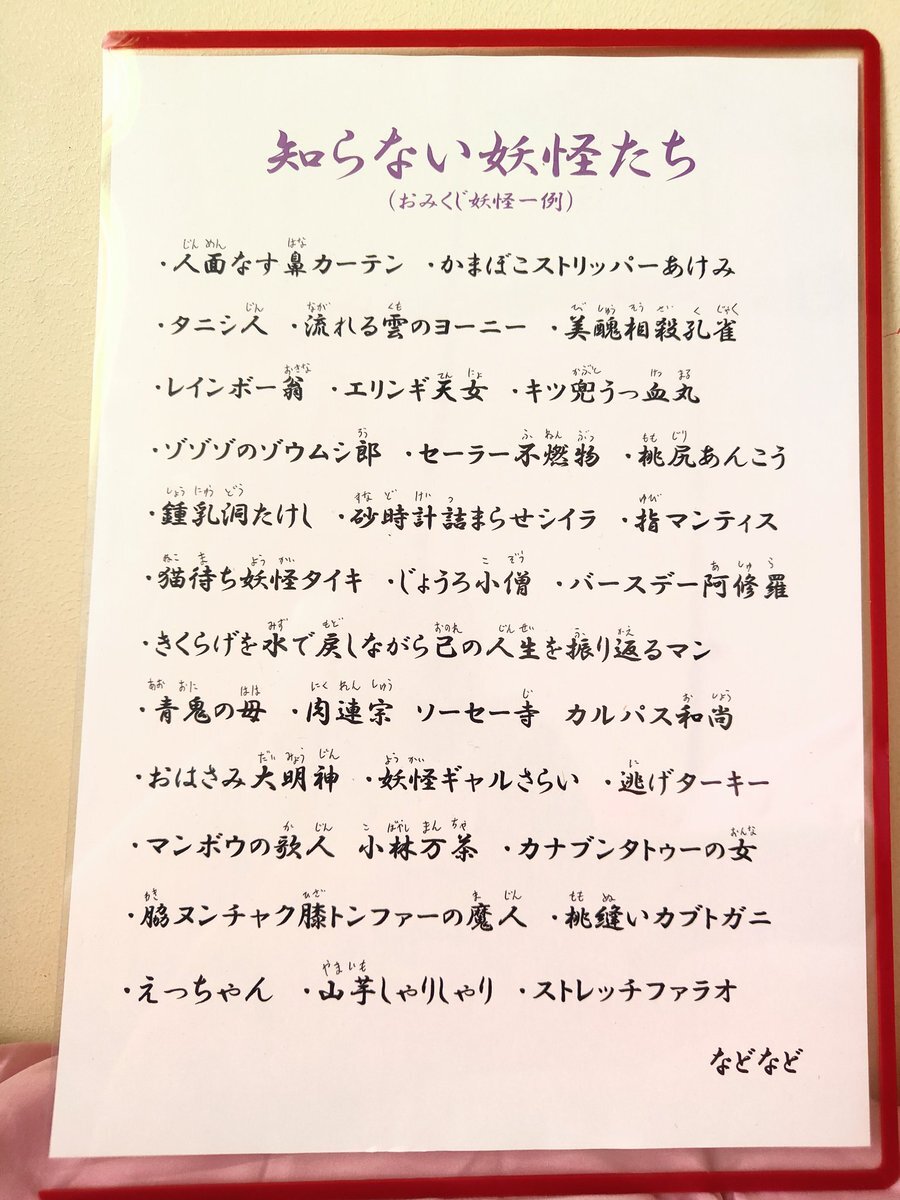 知らない妖怪たち
(おみくじ妖怪一例)
・人面なす鼻カーテン ・かまぼこストリッパーあけみ
・タニシ人 ・流れる雲のヨーニー ・美醜相殺孔雀
・レインボー翁 ・エリンギ天女 ・キツ兜うっ血丸
・ゾゾゾのゾウムシ郎 ・セーラー不燃物 ・桃尻あんこう
・鍾乳洞たけし ・砂時計詰まらせシイラ ・指マンティス
・猫待ち妖怪タイキ ・じょうろ小僧 ・バースデー阿修羅
・きくらげを水で戻しながら己の人生を振り返るマン
・青鬼の母 ・肉連宗 ソーセー寺 カルパス和尚
・おはさみ大明神 ・妖怪ギャルさらい ・逃げターキー
・マンボウの歌人 小林万茶 ・カナブンタトゥーの女
・脇ヌンチャク膝トンファーの魔人 ・桃縫いカブトガニ
・えっちゃん ・山芋しゃりしゃり ・ストレッチファラオ
などなど